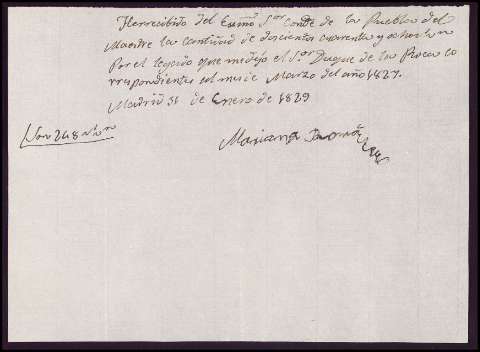 He recibido del Exmo Sor Conde de la Puebla del
Maestre la cantidad de doscientos cuarenta y ocho rs vn
Por el legado que me dejo el Sor Duque de la Roca co
rrespondientes al mes de Marzo del año 1827.
Madrid 31 de Enero de 1829
Son 248 rs vn
Mariana